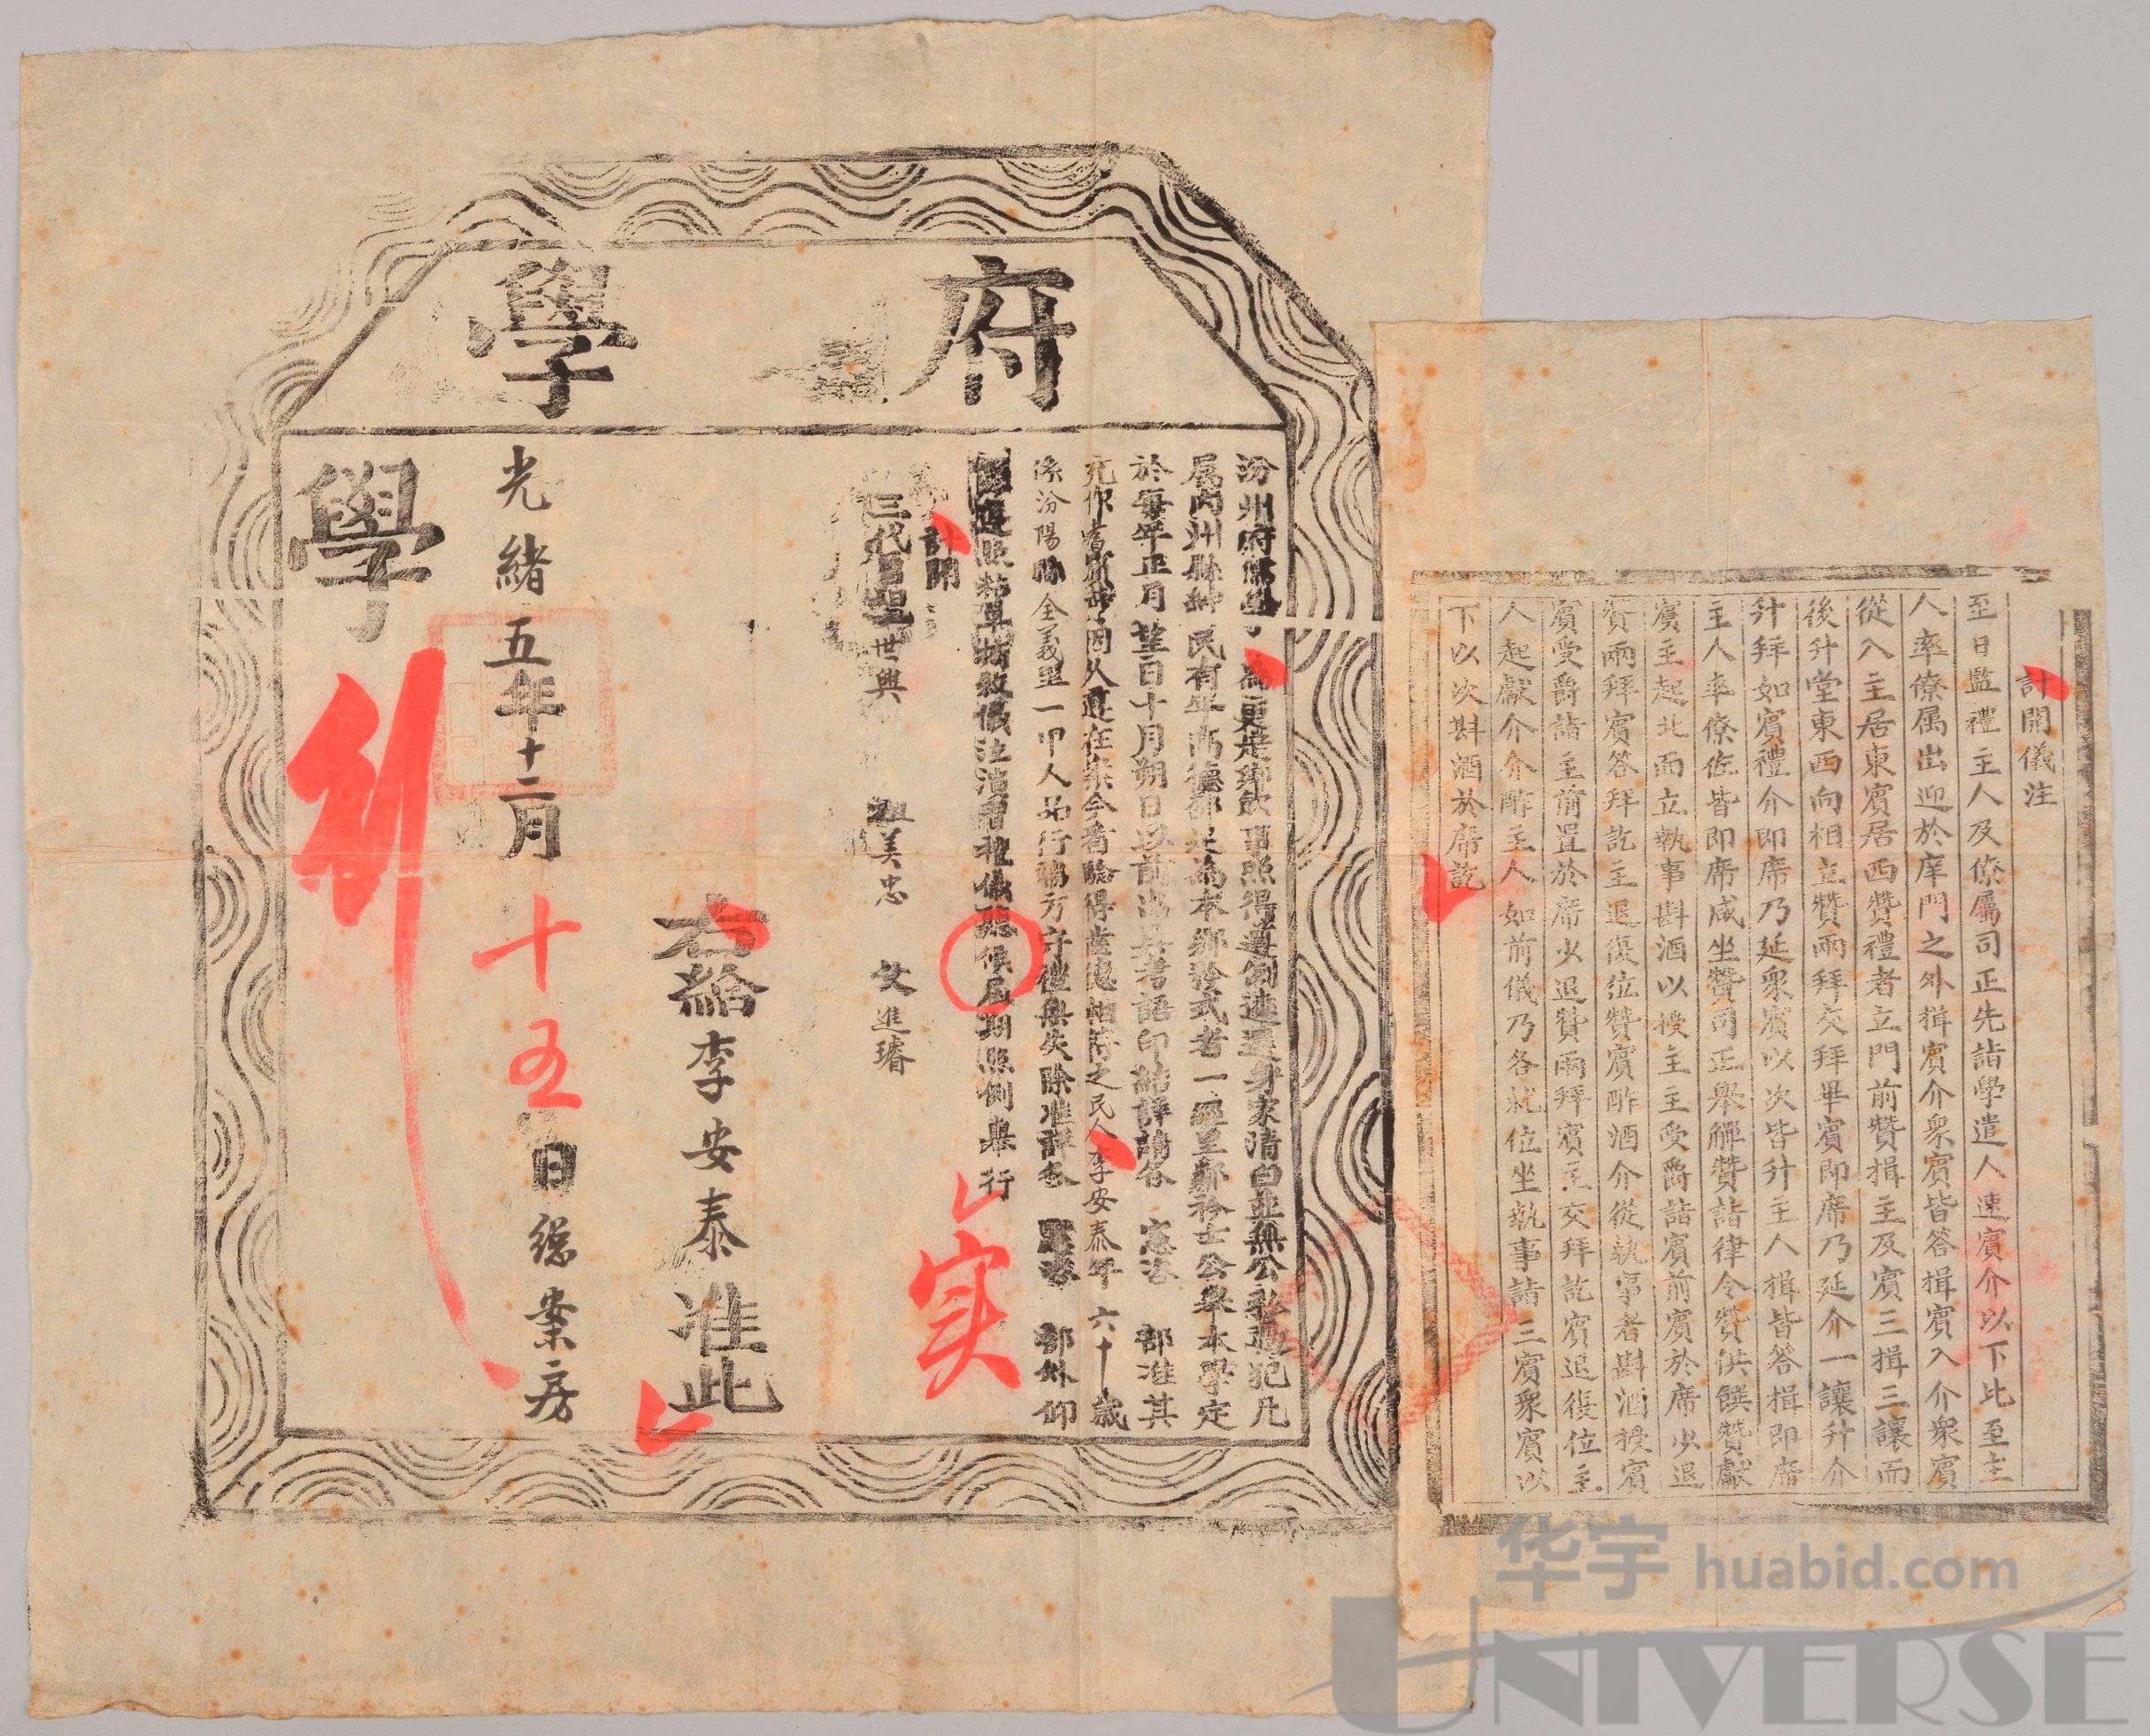 府學
汾州府儒學為興賢鄉飲事照得遵例遴選身家清白並無公私過犯凡
屬內州縣紳民有年高德邵足為本鄉矜式者一經里鄰衿士公舉本學定
於每年正月望日十月朔日以前出具考語印結詳請各憲沐部准其
充作耆賓此因久遵在案今看驗得齒德相符之民人李安泰年六十歲
係汾陽縣全義里一甲人品行端方守禮無失除准詳各部外仰
遵照粘單坊敘儀注演習禮儀聽候屆期照例舉行
計開
三代曾祖世興 祖美忠 父進璿
实
右給李安泰准此
光緒五年十二月十五日總案房
學
計開儀注
至日監禮主人及僚屬司正先詣學遣人速賓介以下比至主
人率僚属出迎於庠門之外揖賓介衆賓皆答揖賓入介衆賓
從入主居東賓居西贊禮者立門前贊揖主及賓三揖三讓而
後升堂東西向相立贊兩拜交拜畢賓即席乃延介一讓升介
升拜如賓禮介即席乃延衆賓以次皆升主人揖皆答揖即席
主人率僚佐皆即席咸坐贊司正舉觶贊詣律令贊供饌贊獻
賓主起北面立執事斟酒以授主主受爵詣賓前賓於席少退
贊兩拜賓答拜訖主退復位贊賓酢酒介從執事者斟酒授賓
賓受爵詣主前置於席少退贊兩拜賓主交拜訖賓退復位主
人起獻介介酢主人如前儀乃各就位坐執事詣三賓衆賓以
下以次斟酒於席訖
华宇 huabid.com
UNIVERSE